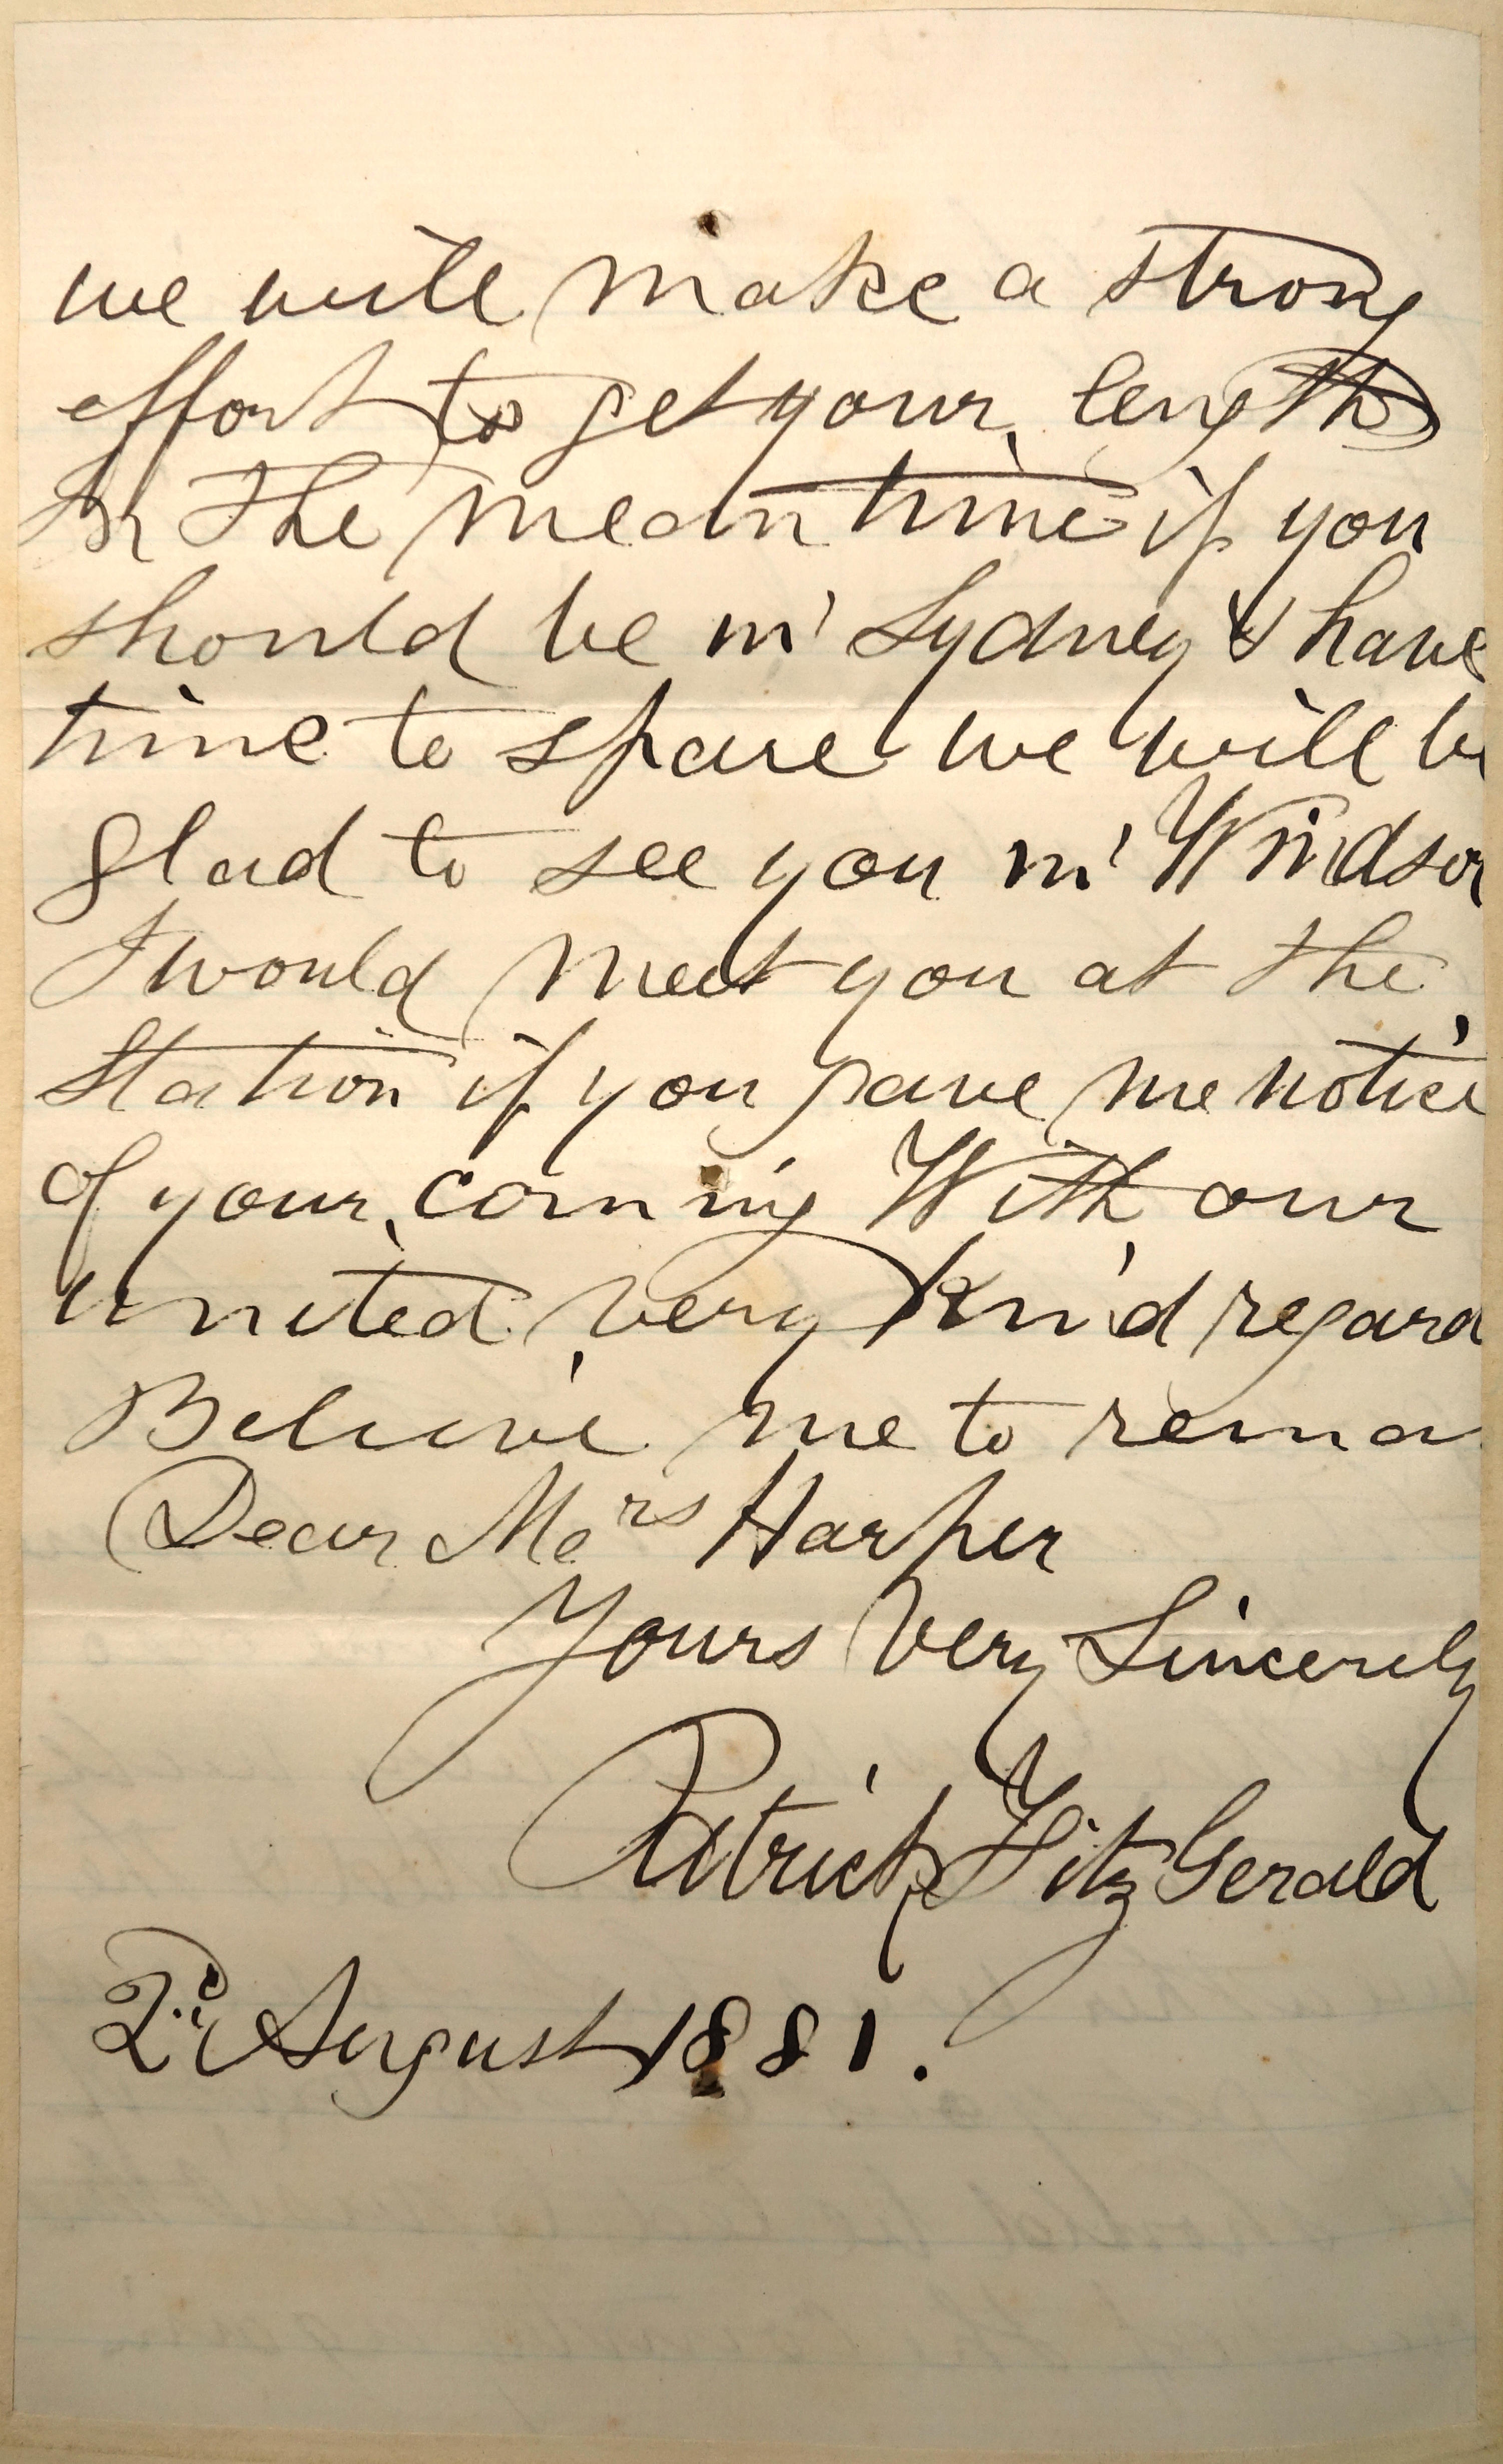 we will make a strong
effort to get your length
In the mean time if you
should be in Sydney & have
time to spare we will be
glad to see you in Windsor
I would meet you at the
Station if you gave me notice
of your coming With our
united very kind regard
Believe me to rema
Dear Mrs Harper
Yours Very Sincerely
Patrick FitzGerald
2nd August 1881.